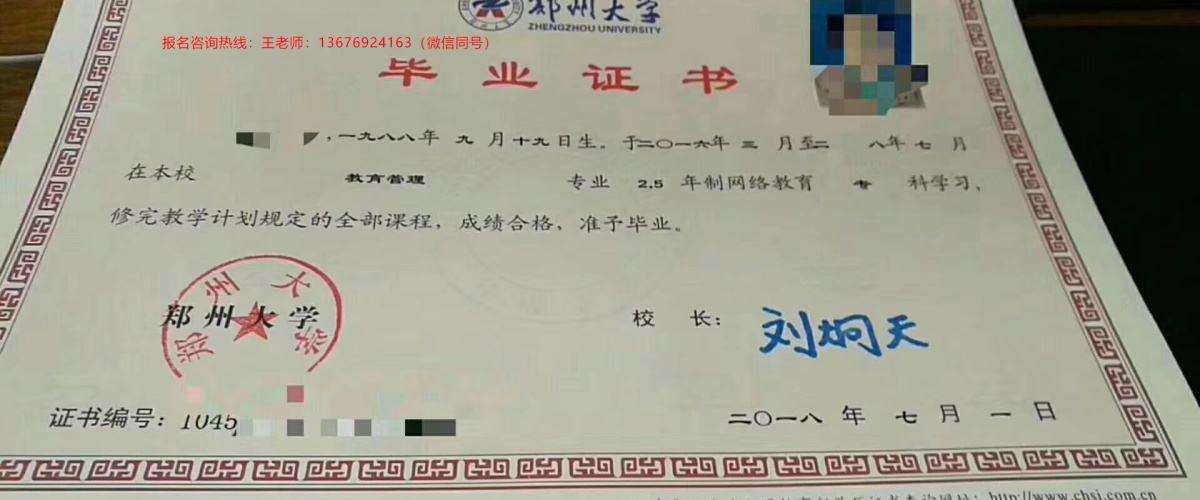 郑州大学
ZHENGZHOU UNIVERSITY
报名咨询热线：王老师：13676924163（微信同号）
毕业证书
，一九八八年 九 月 十九日生。于二〇一六年 三 月至二 八年 七 月
在本校 教育管理 专业 2.5 年制网络教育 专 科学习，
修完教学计划规定的全部课程，成绩合格，准予毕业。
郑州大学
郑州大学
校 长：刘炯天
证书编号：1045
二〇一八 年 七 月 一 日
查询网址：http://www.chsi.com.cn